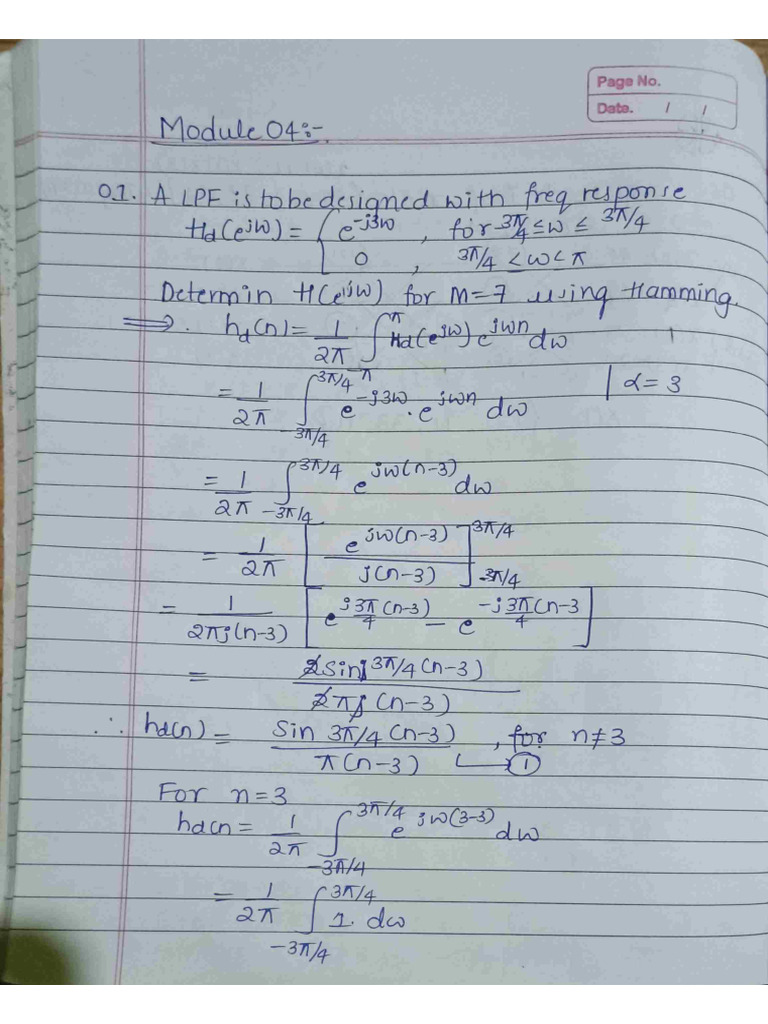 Page No.
Date. / /
Module 04:-
Q1. A LPF is to be designed with freq response
Hd(e^jω) = { e^-j3ω , for 3π/4 ≤ω ≤ 3π/4
0 , 3π/4 < ω < π
Determin H(e^jω) for M=7 using Hamming.
⇒. hd(n) = 1/2π ∫_-π^π Hd(e^jω) e^jωn dω
= 1/2π ∫_-3π/4^3π/4 e^-j3ω . e^jωn dω | α = 3
= 1/2π ∫_-3π/4^3π/4 e^jω(n-3) dω
= 1/2π [ e^jω(n-3) / j(n-3) ]_-3π/4^3π/4
= 1/2πj(n-3) [ e^j3π/4(n-3) - e^-j3π/4(n-3 ]
= 2sinj 3π/4(n-3) / 2πj(n-3)
∴ hd(n) = Sin 3π/4(n-3) / π(n-3) , for n≠3 → ①
For n=3
hd(n = 1/2π ∫_-3π/4^3π/4 e^jω(3-3) dω
= 1/2π ∫_-3π/4^3π/4 1. dω